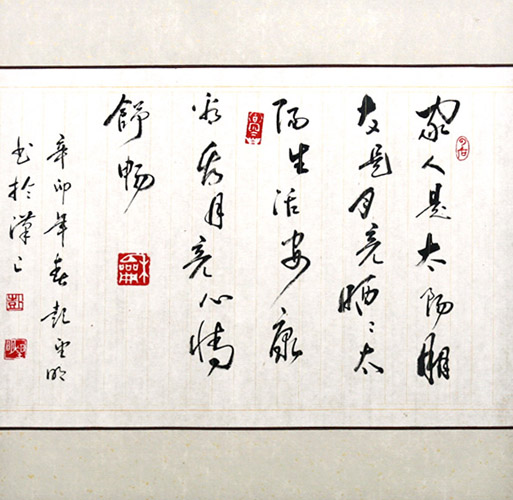 家人是太阳朋
友是月亮晒〻太
阳生活安康
看月亮心情
舒畅
辛卯年春彭明
书於漢